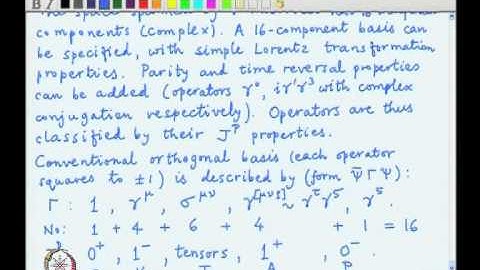 components (complex). A 16-component basis can
be specified, with simple Lorentz transformation
properties. Parity and time reversal properties
can be added (operators γ⁰, iγ¹γ³ with complex
conjugation respectively). Operators are thus
classified by their Jᴾ properties.
Conventional orthogonal basis (each operator
squares to ±1) is described by (form Ψ̄ΓΨ):
Γ : 1, γ^μ, σ^μν, γ^[μνρ] ~ γ^τγ⁵, γ⁵.
No: 1 + 4 + 6 + 4 + 1 = 16
0⁺, 1⁻, tensors, 1⁺, 0⁻.